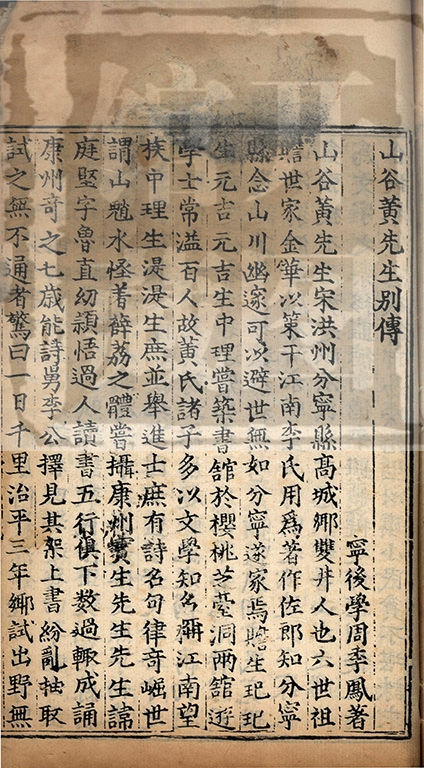 山谷黃先生別傳
寧後學周季鳳著
山谷黃先生宋洪州分寧縣高城鄉雙井人也六世祖
贍世家金華以策干江南李氏用爲著作佐郎知分寧
縣念山川幽邃可以避世無如分寧遂家焉贍生玘玘
生元吉元吉生中理嘗築書舘於櫻桃芝臺洞兩舘遊
學士常溢百人故黃氏諸子多以文學知名爾江南望
族中理生湜湜生庶並舉進士庶有詩名句律奇崛世
謂山魈水怪着薜荔之體嘗攝康州實生先生先生諱
庭堅字魯直幼頴悟過人讀書五行俱下数過輙成誦
康州奇之七歲能詩舅李公擇見其架上書紛亂抽取
試之無不通者驚曰一日千里治平三年鄉試出野無